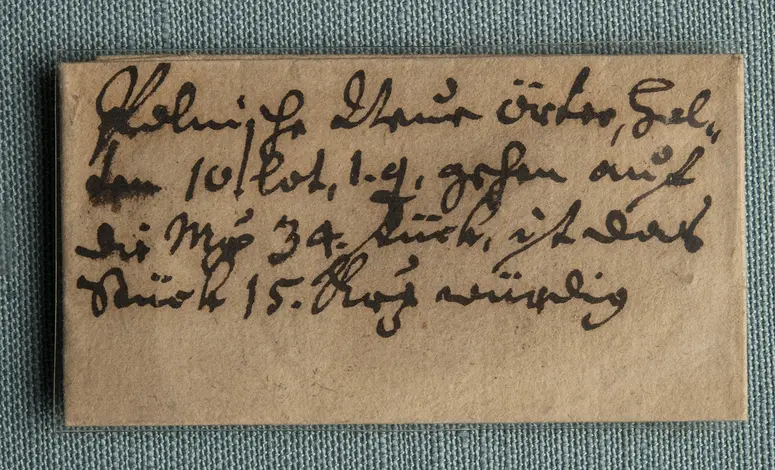 Polnische Neue örter, hal-
ten 10 lot, 1. q, gehen auf
die Mҏ 34. stück, ist das
Stück 15. Krҏ würdig